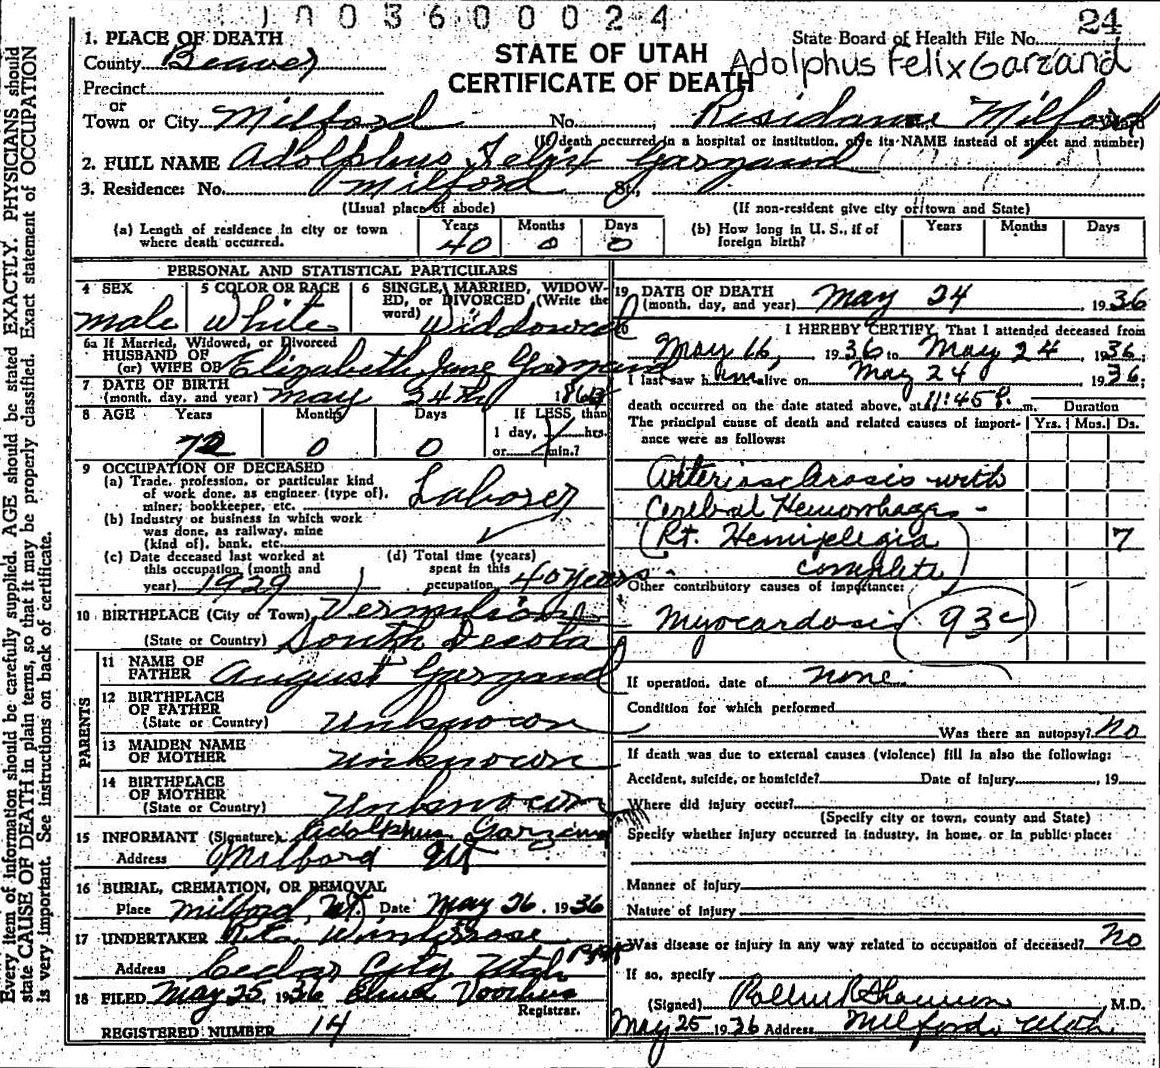 1003600024
24
1. PLACE OF DEATH
County Beaver
STATE OF UTAH
CERTIFICATE OF DEATH
State Board of Health File No.
Adolphus Felix Garzand
Precinct
or
Town or City Milford No. Residance Milford
(If death occurred in a hospital or institution, give its NAME instead of street and number)
2. FULL NAME Adolphus Felix Garzand
3. Residence: No. Milford St.,
(Usual place of abode) (If non-resident give city or town and State)
(a) Length of residence in city or town where death occurred. Years 40 Months 0 Days 0
(b) How long in U. S., if of foreign birth? Years Months Days
PERSONAL AND STATISTICAL PARTICULARS
4 SEX male
5 COLOR OR RACE White
6 SINGLE, MARRIED, WIDOWED, or DIVORCED (Write the word) Widdowed
6a If Married, Widowed, or Divorced
HUSBAND OF
(or) WIFE OF Elizabeth Jane Garzand
7 DATE OF BIRTH
(month, day, and year) May 24th
8 AGE Years 72 Months 0 Days 0 If LESS, than 1 day, hrs. or min.?
9 OCCUPATION OF DECEASED
(a) Trade, profession, or particular kind of work done, as engineer (type of), miner; bookkeeper, etc. Laborer
(b) Industry or business in which work was done, as railway, mine (kind of), bank, etc.
(c) Date deceased last worked at this occupation (month and year) 1929
(d) Total time (years) spent in this occupation 40 years
10 BIRTHPLACE (City or Town) Vermilion
(State or Country) South Decota
PARENTS
11 NAME OF FATHER August Garzand
12 BIRTHPLACE OF FATHER (State or Country) Unknown
13 MAIDEN NAME OF MOTHER Unknown
14 BIRTHPLACE OF MOTHER (State or Country) Unknown
15 INFORMANT (Signature) Adolphus Garzand
Address Milford Ut
16 BURIAL, CREMATION, OR REMOVAL
Place Milford, Ut. Date May 26. 1936
17 UNDERTAKER
Address Cedar City Utah
18 FILED May 25, 1936 Registrar.
REGISTERED NUMBER 14
19 DATE OF DEATH
(month, day, and year) May 24 1936
I HEREBY CERTIFY, That I attended deceased from
May 16, 1936 to May 24, 1936;
I last saw him alive on May 24 1936;
death occurred on the date stated above, at 11:45 P. m.
Duration
The principal cause of death and related causes of importance were as follows: Yrs. Mos. Ds.
Arteriosclerosis with
Cerebral Hemorrhage -
(Rt. Hemiplegia 7
complete)
Other contributory causes of importance:
Myocardosis 93c
If operation, date of none.
Condition for which performed
Was there an autopsy? No
If death was due to external causes (violence) fill in also the following:
Accident, suicide, or homicide? Date of injury , 19
Where did injury occur?
(Specify city or town, county and State)
Specify whether injury occurred in industry, in home, or in public place:
Manner of injury
Nature of injury
Was disease or injury in any way related to occupation of deceased? No
If so, specify
(Signed) M.D.
May 25 1936 Address Milford, Utah
Every item of information should be carefully supplied. AGE should be stated EXACTLY. PHYSICIANS should
state CAUSE OF DEATH in plain terms, so that it may be properly classified. Exact statement of OCCUPATION
is very important. See instructions on back of certificate.